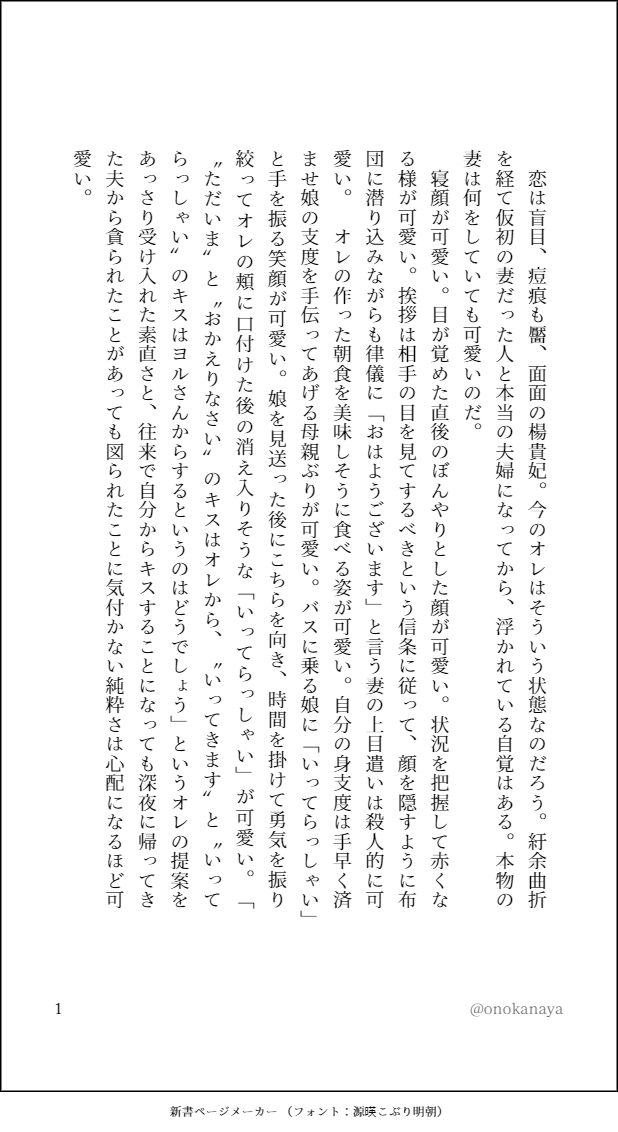 恋は盲目、痘痕も靨、面面の楊貴妃。今のオレはそういう状態なのだろう。紆余曲折
を経て仮初の妻だった人と本当の夫婦になってから、浮かれている自覚はある。本物の
妻は何をしていても可愛いのだ。
　寝顔が可愛い。目が覚めた直後のぼんやりとした顔が可愛い。状況を把握して赤くな
る様が可愛い。挨拶は相手の目を見てするべきという信条に従って、顔を隠すように布
団に潜り込みながらも律儀に「おはようございます」と言う妻の上目遣いは殺人的に可
愛い。　オレの作った朝食を美味しそうに食べる姿が可愛い。自分の身支度は手早く済
ませ娘の支度を手伝ってあげる母親ぶりが可愛い。バスに乗る娘に「いってらっしゃい」
と手を振る笑顔が可愛い。娘を見送った後にこちらを向き、時間を掛けて勇気を振り
絞ってオレの頬に口付けた後の消え入りそうな「いってらっしゃい」が可愛い。「
〝ただいま〟と〝おかえりなさい〟のキスはオレから、〝いってきます〟と〝いって
らっしゃい〟のキスはヨルさんからするというのはどうでしょう」というオレの提案を
あっさり受け入れた素直さと、往来で自分からキスすることになっても深夜に帰ってき
た夫から貪られたことがあっても図られたことに気付かない純粋さは心配になるほど可
愛い。
1
@onokanaya
新書ページメーカー（フォント：源暎こぶり明朝）